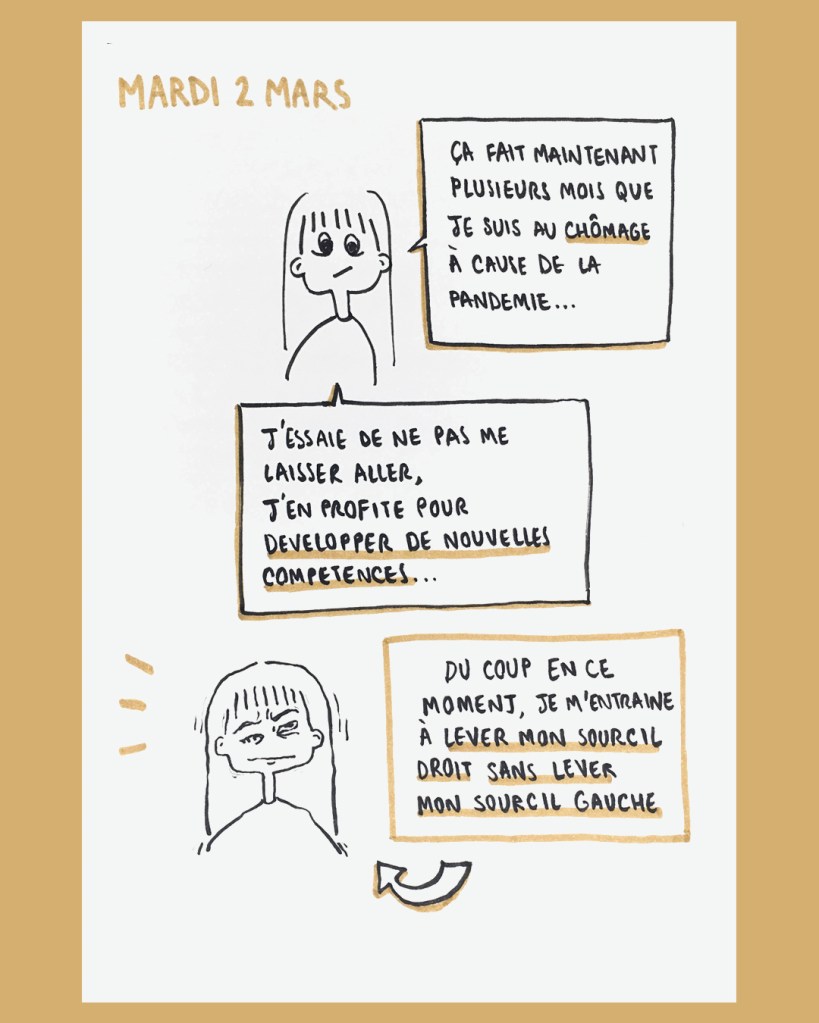 MARDI 2 MARS
ÇA FAIT MAINTENANT
PLUSIEURS MOIS QUE
JE SUIS AU CHÔMAGE
À CAUSE DE LA
PANDEMIE...
J'ESSAIE DE NE PAS ME
LAISSER ALLER,
J'EN PROFITE POUR
DEVELOPPER DE NOUVELLES
COMPETENCES...
DU COUP EN CE
MOMENT, JE M'ENTRAINE
À LEVER MON SOURCIL
DROIT SANS LEVER
MON SOURCIL GAUCHE